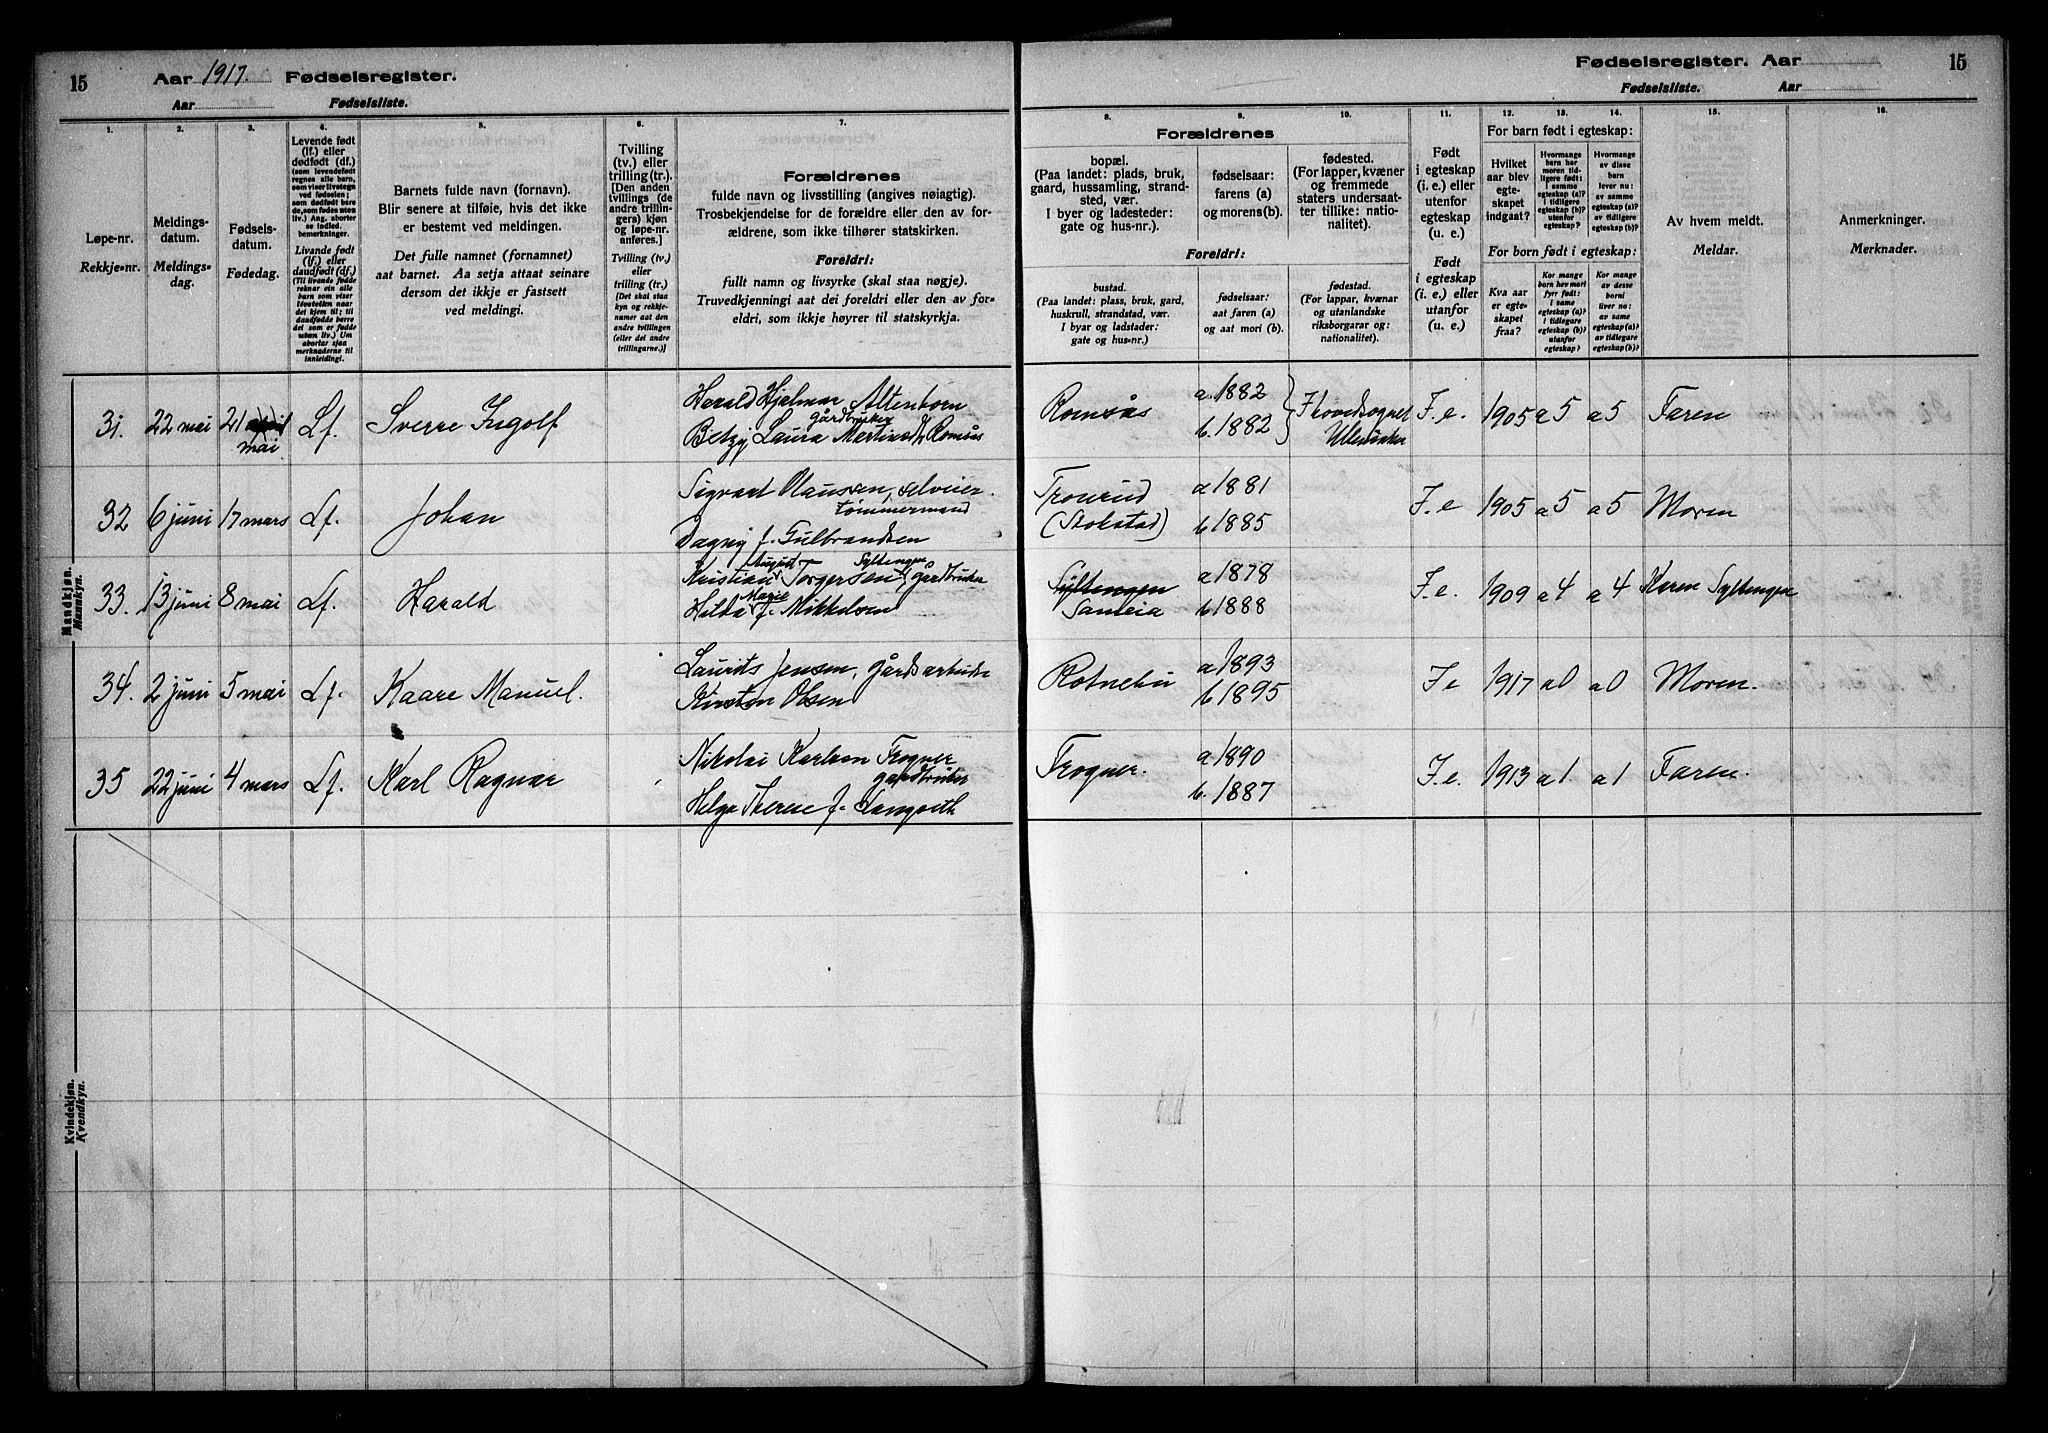 15
Aar 1917. Fødselsregister.
Aar Fødselsliste.
1.
Løpe-nr.
Rekkje-nr.
2.
Meldings-
datum.
Meldings-
dag.
3.
Fødsels-
datum.
Fødedag.
4.
Levende født
(lf.) eller
dødfødt (df.)
5.
Barnets fulde navn (fornavn).
Blir senere at tilføie, hvis det ikke
er bestemt ved meldingen.
Det fulle namnet (fornamnet)
aat barnet. Aa setja attaat seinare
dersom det ikkje er fastsett
ved meldingi.
6.
Tvilling
(tv.) eller
trilling (tr.).
[Den anden
tvillings (de
andre trillin-
gers) kjøn
og løpe-nr.
anføres.]
Tvilling (tv.)
eller
trilling (tr.)
[Det skal staa
kyn og rekkje-
numer aat den
andre tvillingen
(eller dei andre
trillingarne.)]
7.
Forældrenes
fulde navn og livsstilling (angives nøiagtig).
Trosbekjendelse for de forældre eller den av for-
ældrene, som ikke tilhører statskirken.
Foreldri:
fullt namn og livsyrke (skal staa nøgje).
Truvedkjenningi aat dei foreldri eller den av for-
eldri, som ikkje høyrer til statskyrkja.
Mandkjøn.
Mannkyn.
31. 22 mai 21 mai Lf. Sverre Ingolf
Herald Hjalmar Altenborn
gårdbruker
Betzy Laura
32 6 juni 17 mars Lf. Johan
Sigvart Olaussen, selveier.
tømmermand
Dagny f. Gulbrandsen
33. 13 juni 8 mai Lf. Harald
August Syltengen
Kristian Torgersen gårdbruker
Marie
Hilda f. Mikkelsen
34. 2 juni 5 mai Lf. Kaare Manuel.
Laurits Jensen, gårdsarbeider
Kirsten Olsen
35 22 juni 4 mars Lf. Karl Ragnar
Nikolai Karlsen Frogner
gardbruker
Helga Therese f. Langseth
Kvindekjøn.
Kvendkyn.
Fødselsregister. Aar 15
Fødselsliste. Aar
Forældrenes
8.
bopæl.
(Paa landet: plads, bruk,
gaard, hussamling, strand-
sted, vær.
I byer og ladesteder:
gate og hus-nr.).
9.
fødselsaar:
farens (a)
og morens(b).
10.
fødested.
(For lapper, kvæner
og fremmede
staters undersaat-
ter tillike: natio-
nalitet).
Foreldri:
bustad.
(Paa landet: plass, bruk, gard,
huskrull, strandstad, vær.
I byar og ladstader:
gate og hus-nr.)
fødselsaar:
aat faren (a)
og aat mori (b).
fødestad.
(For lappar, kvænar
og utanlandske
riksborgarar og:
nationalitet).
11.
Født
i egteskap
(i. e.) eller
utenfor
egteskap
(u. e.)
Født
i egteskap
(i. e.) eller
utanfor
(u. e.)
12. 13. 14.
For barn født i egteskap:
Hvilket
aar blev
egte-
skapet
indgaat?
Hvormange
barn har
moren tid-
ligere født:
i samme
egteskap (a)?
i tidligere
egteskap (b)?
utenfor
egteskap?
Hvormange
av disse
barn
lever nu:
av samme
egteskap (a)?
av tidligere
egteskap (b)?
For born født i egteskap:
Kva aar
er egte-
skapet
fraa?
Kor mange
born hev mori
fyrr født:
i same
egteskap (a)?
i tidlegare
egteskap (b)?
utanfor
egteskap?
Kor mange
av desse
borni
liver no:
av same
egteskap (a)?
av tidlegare
egteskap (b)?
15.
Av hvem meldt.
Meldar.
16.
Anmerkninger.
Merknader.
Romsås a. 1882 b. 1882 Hovedsognet Ullensaker I. e. 1905 a 5 a 5 Faren
Trourud (Stokstad) a 1881 b. 1885 I. e 1905 a 5 a 5 Moren
Syltengen a 1878 b. 1888 I. e. 1909 a 4 a 4 Karen Syltengen
Rotnebu a. 1893 b. 1895 I. e 1917 a 0 a 0 Moren.
Frogner. a 1890 b. 1887 I. e. 1913 a 1. a 1 Faren.